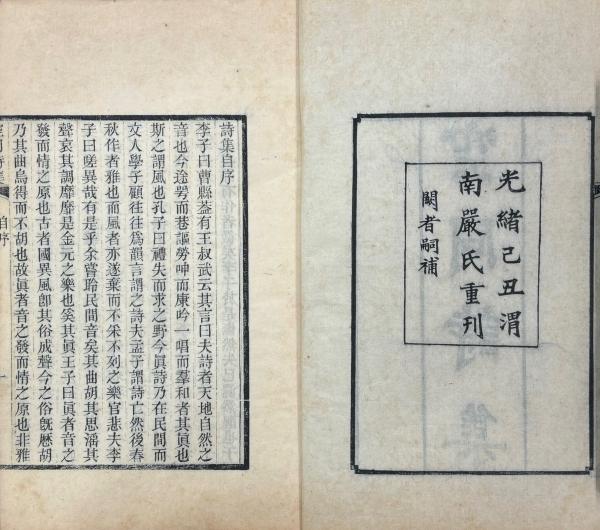 光緒己丑渭
南嚴氏重刊
闕者嗣補
詩集自序
李子曰曹縣葢有王叔武云其言曰夫詩者天地自然之
音也今途咢而巷謳勞呻而康吟一唱而羣和者其眞也
斯之謂風也孔子曰禮失而求之野今眞詩乃在民間而
文人學子顧往往爲韻言謂之詩夫孟子謂詩亡然後春
秋作者雅也而風者亦遂棄而不采不列之樂官悲夫李
子曰嗟異哉有是乎余嘗聆民間音矣其曲胡其思淫其
聲哀其調靡靡是金元之樂也奚其眞王子曰眞者音之
發而情之原也古者國異風卽其俗成聲今之俗旣歷胡
乃其曲烏得而不胡也故眞者音之發而情之原也非雅
自序